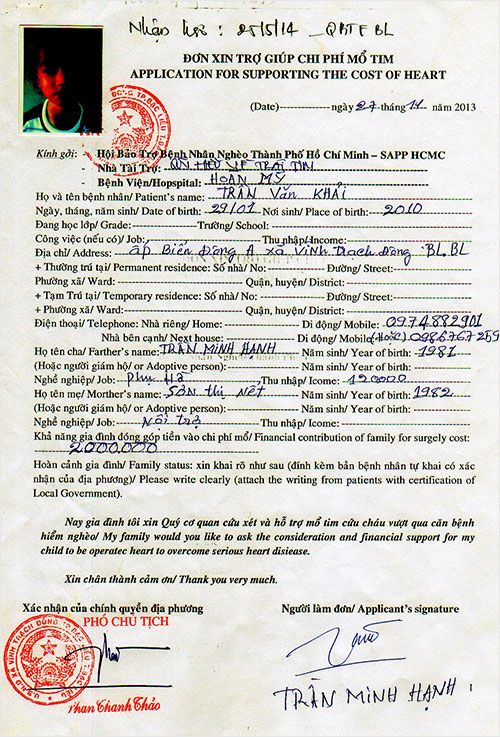 Nhận lúc: 25/5/14 _QBTEBL
ĐƠN XIN TRỢ GIÚP CHI PHÍ MỔ TIM
APPLICATION FOR SUPPORTING THE COST OF HEART
(Date)--------------ngày 27 -tháng 11 năm 2013
Kính gởi: - Hội Bảo Trợ Bệnh Nhân Nghèo Thành Phố Hồ Chí Minh – SAPP HCMC
- Nhà Tài Trợ: QN HIỂU VỀ TRÁI TIM
- Bệnh Viện/Hopspital: HOÀN MỸ
Họ và tên bệnh nhân/ Patient's name: TRẦN Văn KHẢI
Ngày, tháng, năm sinh/ Date of birth: 29/01 Nơi sinh/ Place of birth: 2010
Đang học lớp/ Grade: Trường/ School:
Công việc (nếu có)/ Job: Thu nhập/Income:
Địa chỉ/ Address: ấp Biển Đông A xã Vĩnh Trạch Đông. BL.BL
+ Thường trú tại/ Permanent residence: Số nhà/ No: Đường/ Street:
Phường xã/ Ward: Quận, huyện/ District:
+ Tạm Trú tại/ Temporary residence: Số nhà/ No: Đường/ Street:
+ Phường xã/ Ward: Quận, huyện/ District:
Điện thoại/ Telephone: Nhà riêng/ Home: Di động/ Mobile: 0974882901
Nhà bên cạnh/ Next house: Di động/ Mobile: 0986767259
Họ tên cha/ Farther's name: TRẦN MINH HẠNH Năm sinh/ Year of birth: 1981
(Hoặc người giám hộ/ or Adoptive person): Năm sinh/ Year of birth:
Nghề nghiệp/ Job: Phụ Hồ Thu nhập/ Icome: 120000
Họ tên mẹ/ Morther's name: Sơn thị Nết Năm sinh/ Year of birth: 1982
(Hoặc người giám hộ/ or Adoptive person): Năm sinh/ Year of birth:
Nghề nghiệp/ Job: Nội trợ Thu nhập/ Icome:
Khả năng gia đình đóng góp tiền vào chi phí mổ/ Financial contribution of family for surgely cost:
2000.000
Hoàn cảnh gia đình/ Family status: xin khai rõ như sau (đính kèm bản bệnh nhân tự khai có xác
nhận của địa phương)/ Please write clearly (attach the writing from patients with certification of
Local Government).
Nay gia đình tôi xin Quý cơ quan cứu xét và hỗ trợ mổ tim cứu cháu vượt qua căn bệnh
hiểm nghèo/ My family would you like to ask the consideration and financial support for my
child to be operatec heart to overcome serious heart disiease.
Xin chân thành cảm ơn/ Thank you very much.
Xác nhận của chính quyền địa phương
PHÓ CHỦ TỊCH
Phan Thanh Thảo
Người làm đơn/ Applicant's signature
TRẦN MINH HẠNH